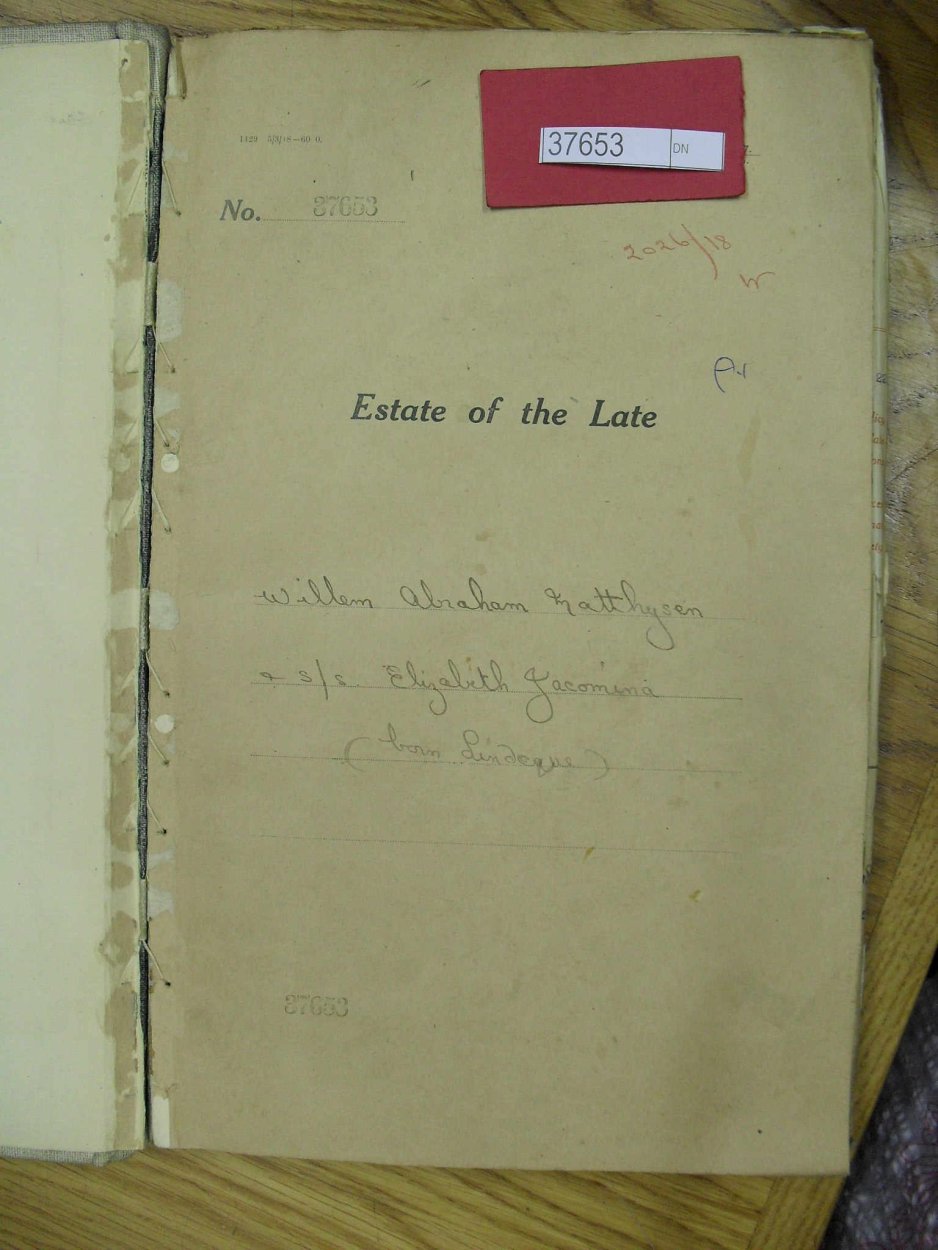 37653 DN
1429 5/3/18—60 0.
No. 37653
2026/18
W
Estate of the Late
Willem Abraham Matthysen
& s/s. Elizabeth Jacomina
(born Lindeque)
37653